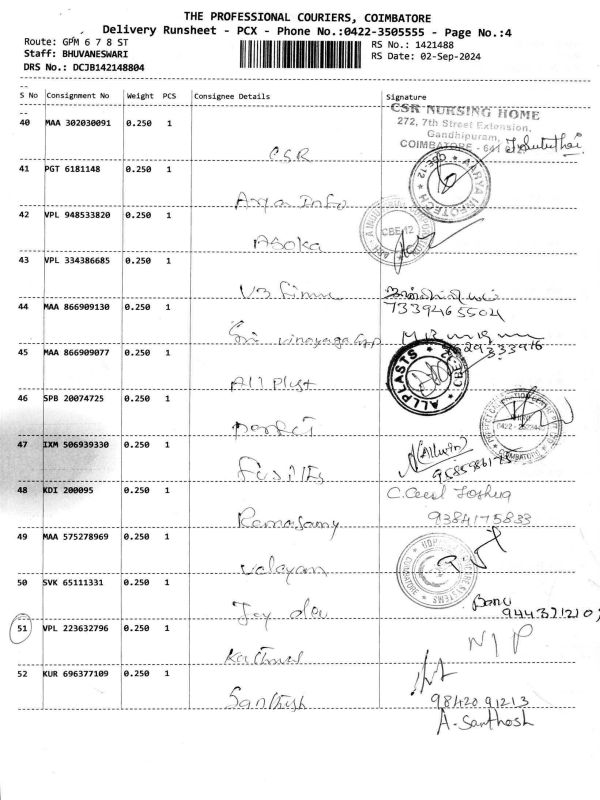 THE PROFESSIONAL COURIERS, COIMBATORE
Delivery Runsheet - PCX - Phone No.:0422-3505555 - Page No.:4
Route: GPM 6 7 8 ST
RS No.: 1421488
Staff: BHUVANESWARI
RS Date: 02-Sep-2024
DRS No.: DCJB142148804
S No Consignment No Weight PCS Consignee Details Signature
40 MAA 302030091 0.250 1
CSR NURSING HOME
272, 7th Street Extension,
Gandhipuram,
COIMBATORE - 641 012
CSR
41 PGT 6181148 0.250 1
AARYA INFOTECH
CBE-12
Arya Info
42 VPL 948533820 0.250 1
CBE 12
Asoka
43 VPL 334386685 0.250 1
7339465504
44 MAA 866909130 0.250 1
Sri Vinayaga
45 MAA 866909077 0.250 1
ALLPLASTS
CBE
All Plast
46 SPB 20074725 0.250 1
COIMBATORE
47 IXM 506939330 0.250 1
48 KDI 200095 0.250 1
C. Cecil Joshua
9384175833
Ramasamy
49 MAA 575278969 0.250 1
Velayam
50 SVK 65111331 0.250 1
Banu
Joy
51 VPL 223632796 0.250 1
N/P
52 KUR 696377109 0.250 1
9842091213
A. Santhosh
Santhosh